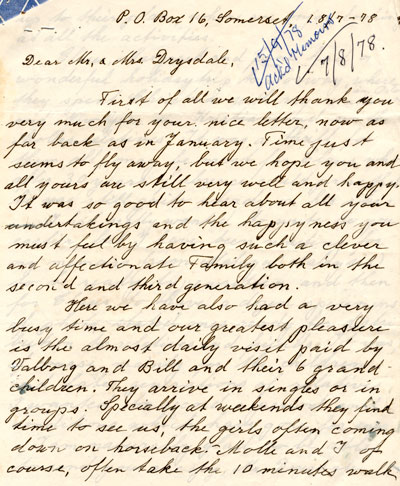 P.O. Box 16, Somerset, 18/7-78
15/9/78
Ack'd Memoirs
7/8/78.
Dear Mr. & Mrs. Drysdale,
First of all we will thank you
very much for your nice letter, now as
far back as in January. Time just
seems to fly away, but we hope you and
all yours are still very well and happy.
It was so good to hear about all your
undertakings and the happyness you
must feel by having such a clever
and affectionate Family both in the
second and third generation.
Here we have also had a very
busy time and our greatest pleasure
is the almost daily visit paid by
Valborg and Bill and their 6 grand-
children. They arrive in singles or in
groups. Specially at weekends they find
time to see us, the girls often coming
down on horseback. Molle and I of
course, often take the 10 minutes walk